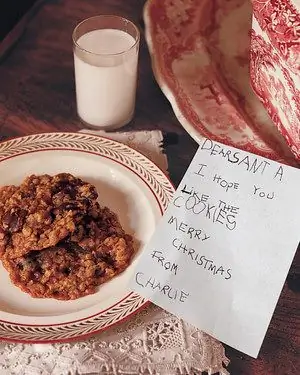 DEAR SANTA
I HOPE YOU
LIKE THE
COOKIES
MERRY
CHRISTMAS
FROM
CHARLIE